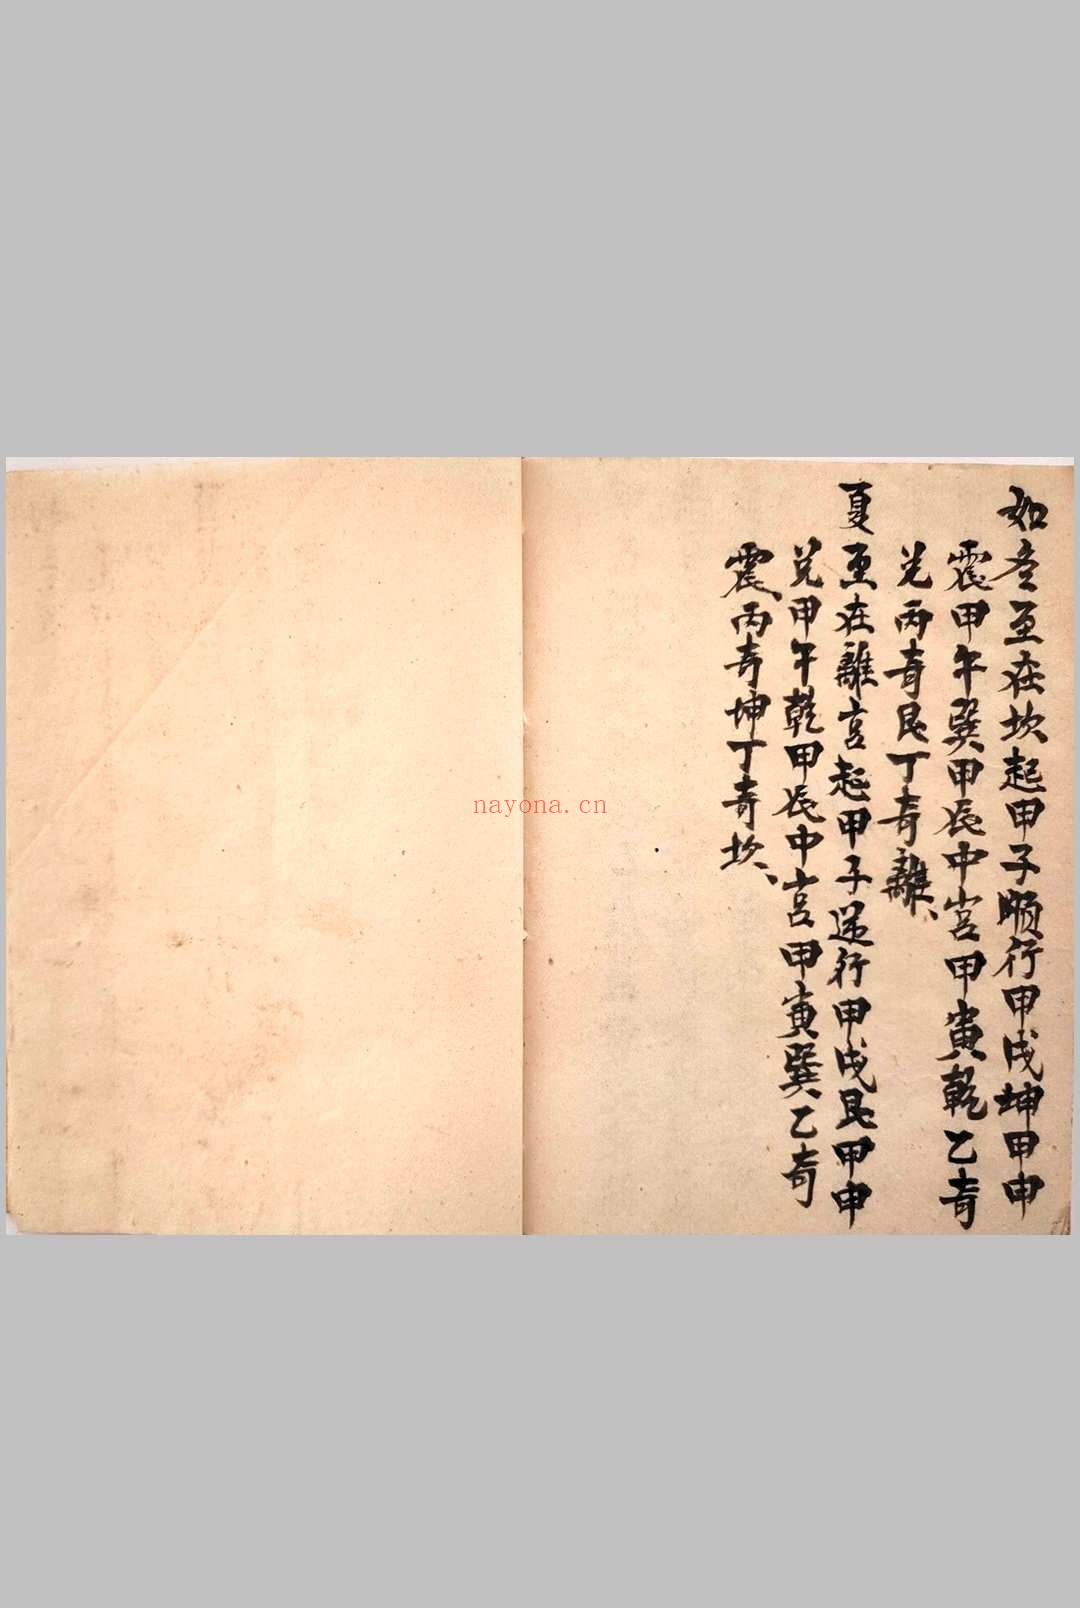 如冬至在坎起甲子順行甲戌坤甲申
震甲午巽甲辰中宮甲寅乾乙奇
兌丙奇艮丁奇離、
夏至在離宮起甲子逆行甲戌艮甲申
兌甲午乾甲辰中宮甲寅巽乙奇
震丙奇坤丁奇坎、
nayona.cn